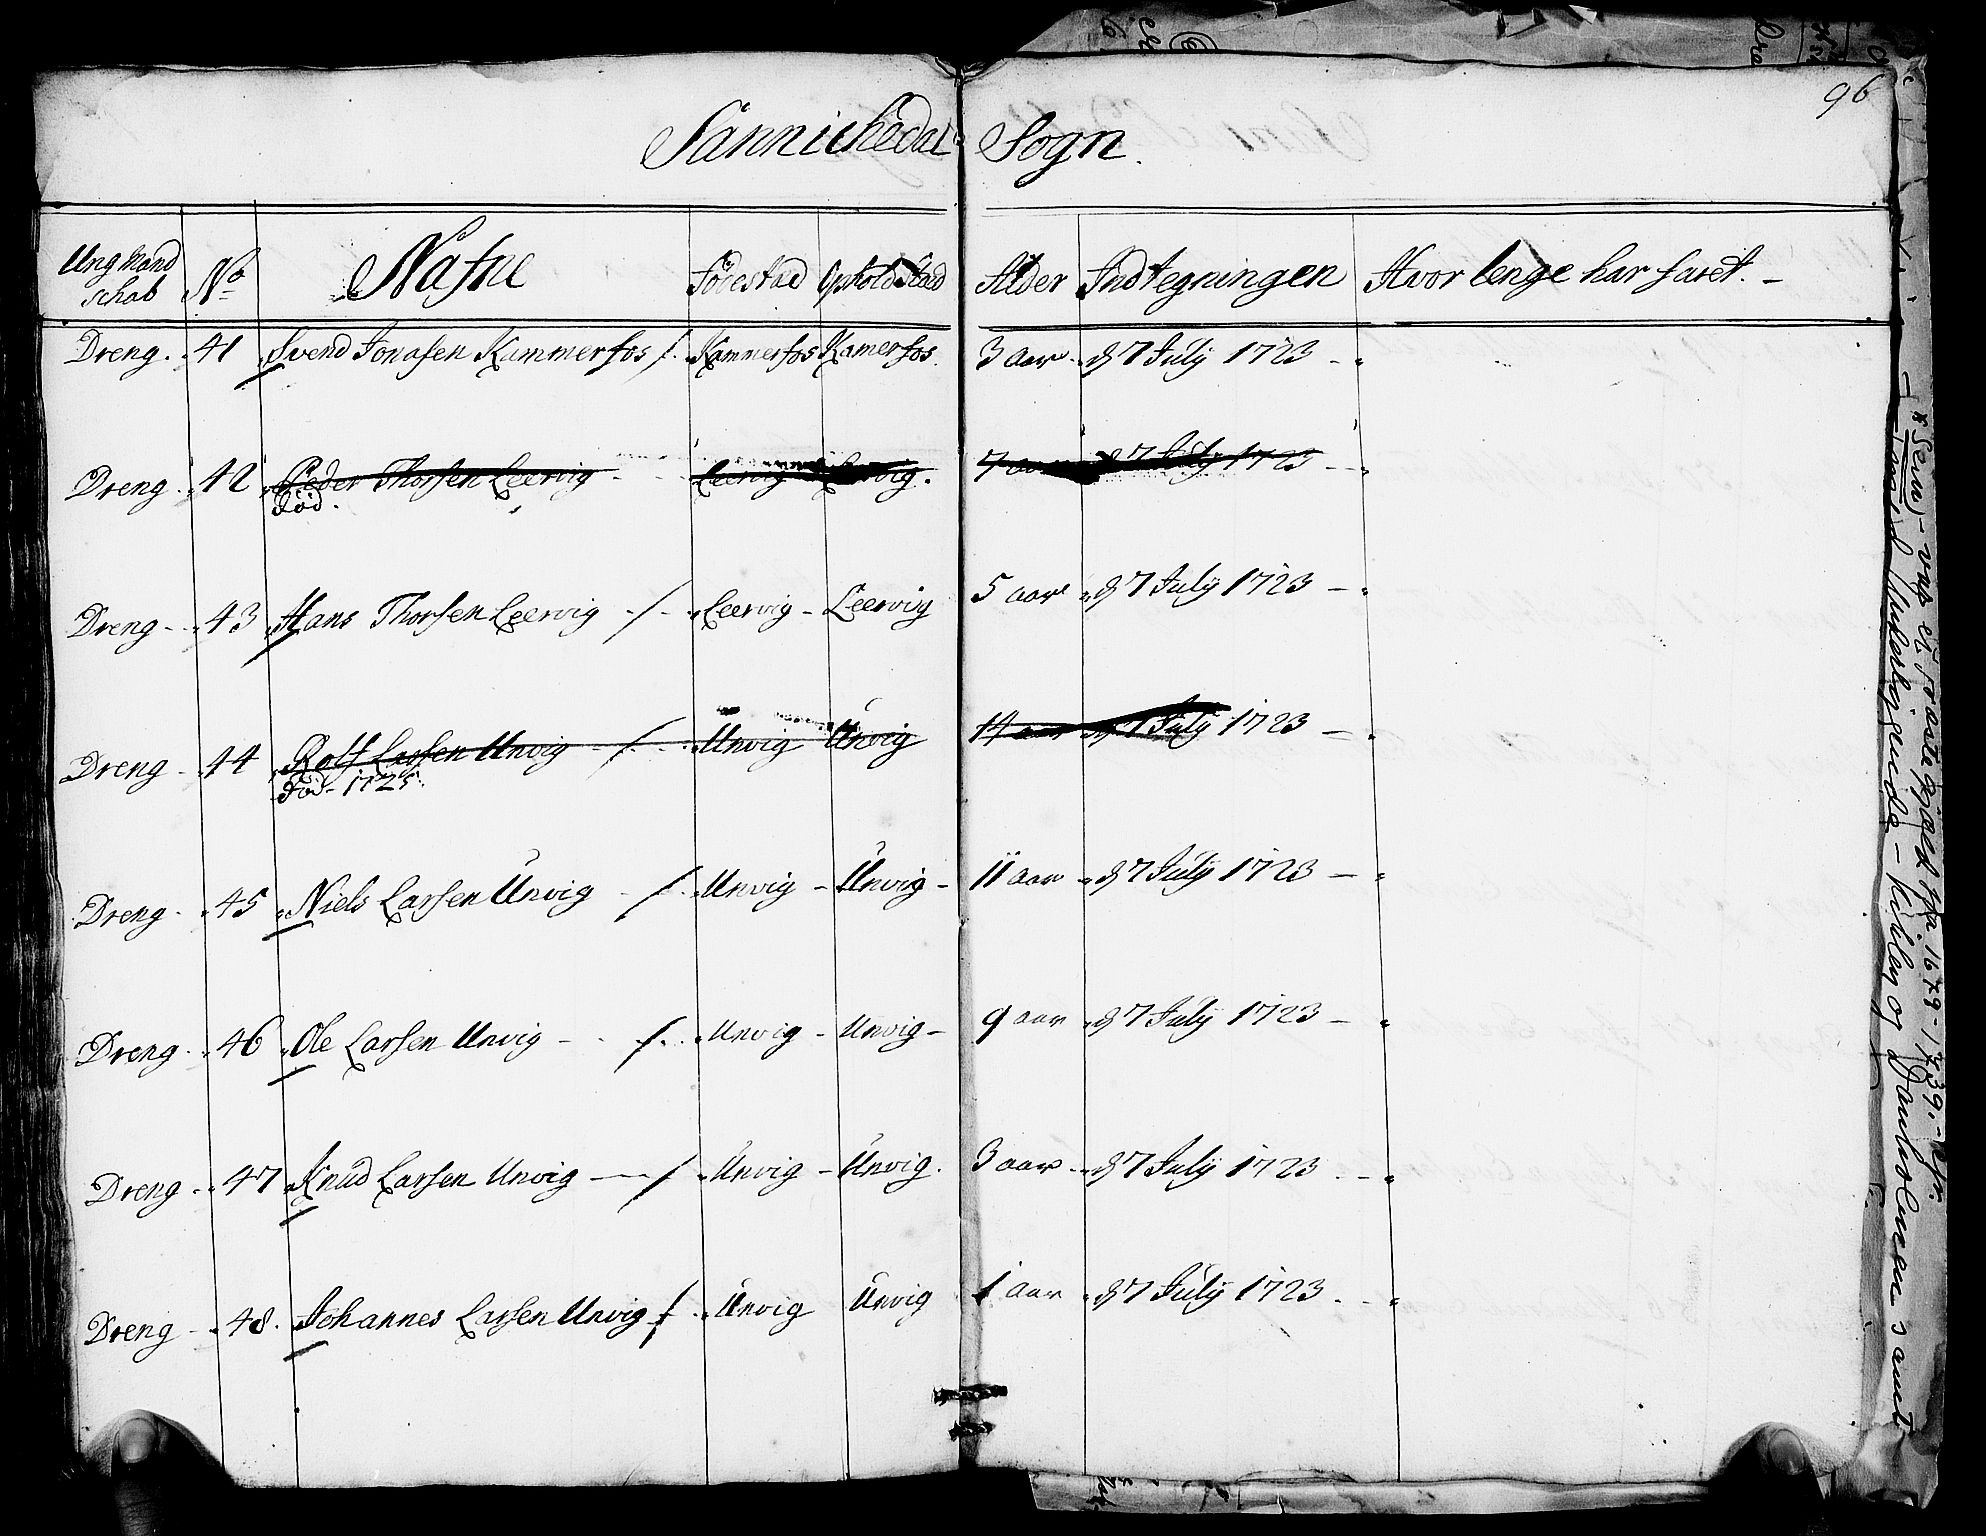 96
Sannichedal Sogn.
Ung Mand schab No Nafne Födestad Opholdstad Alder Indtegningen Hvor lenge har faret. -
Dreng. 41 Svend Jonasen Kammerfos Kammerfos Kamerfos. 3 aar d 7 July 1723 -
Dreng 42 Peder Thorsen Leervig Leervig Lervig. 7 aar d 7 July 1723 -
död.
Dreng - 43 Hans Thorsen Leervig Leervig - Leervig 5 aar d 7 July 1723 -
Dreng - 44 Rolf Larsen Unvig Unvig Unvig 14 aar d 7 July 1723 -
död - 1725
Dreng - 45 Niels Larsen Unvig Unvig - Unvig - 11 aar d 7 July 1723 -
Dreng - 46 Ole Larsen Unvig - Unvig - Unvig - 9 aar d 7 July 1723 -
Dreng - 47 Knud Larsen Unvig - Unvig - Unvig. 3 aar d 7 July 1723 -
Dreng - 48. Johannes Larsen Unvig Unvig Unvig 1 aar d 7 July 1723 -